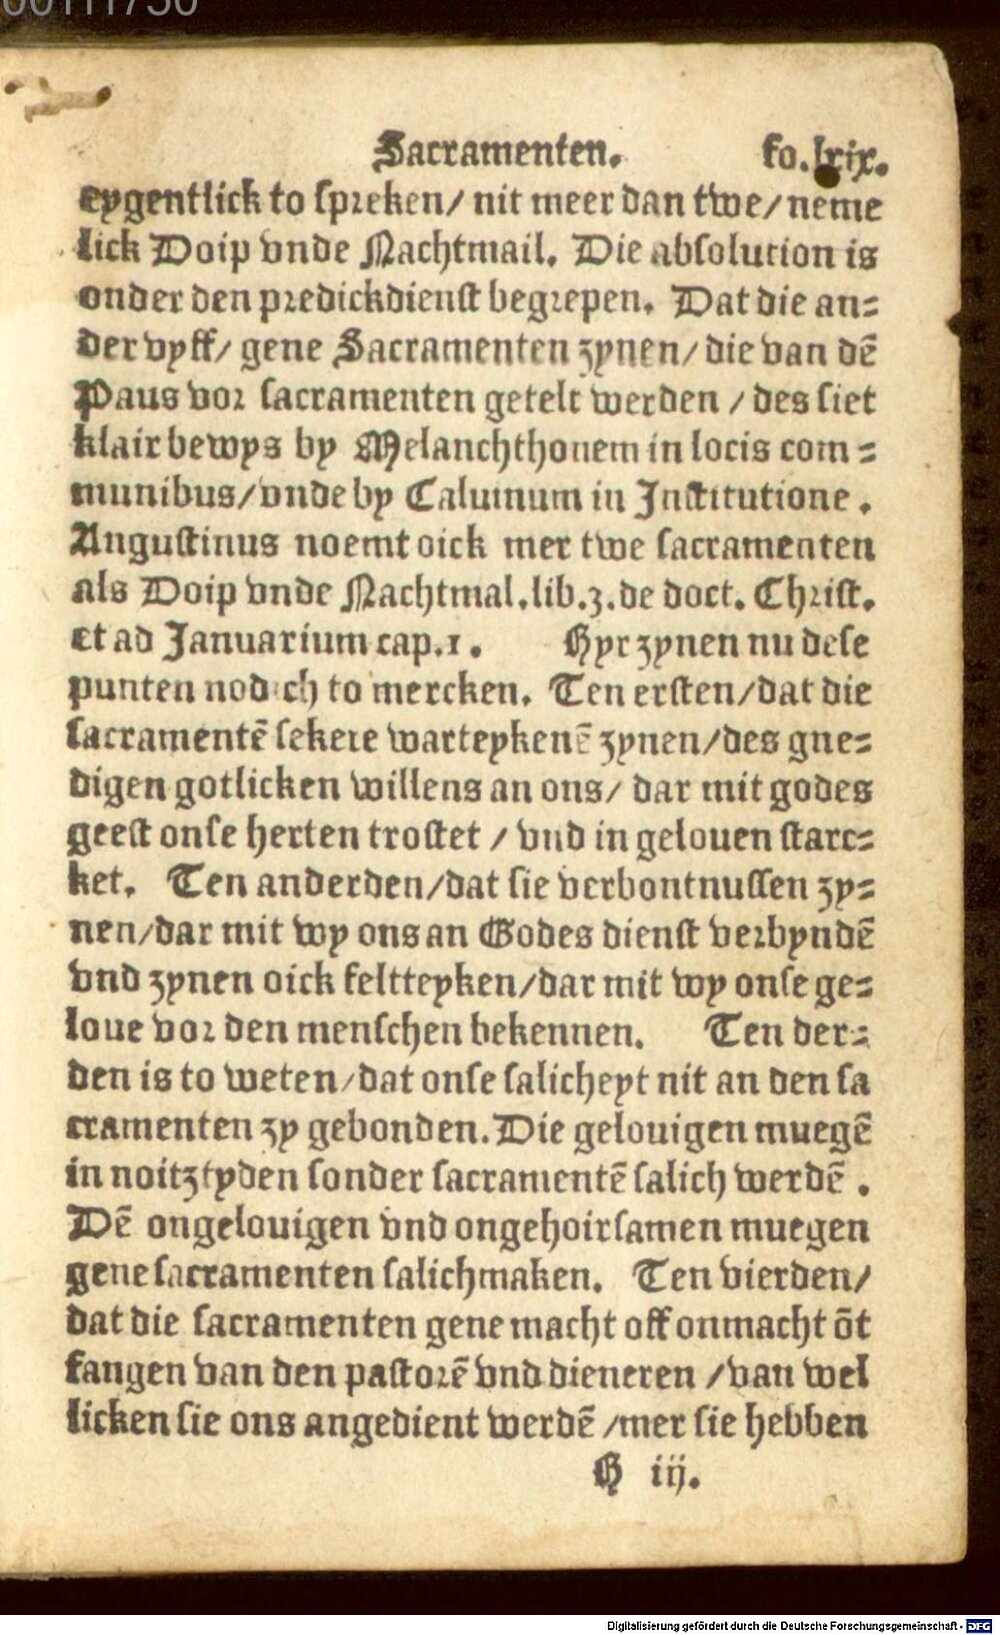 00111750
Sacramenten. fo. lxix.
eygentlick to spreken/ nit meer dan twe/ neme
lick Doip vnde Nachtmail. Die absolution is
onder den predickdienst begrepen. Dat die an-
der vyff/ gene Sacramenten zynen/ die van dē
Paus vor sacramenten getelt werden / des siet
klair bewys by Melanchthonem in locis com-
munibus/ vnde by Caluinum in Institutione.
Augustinus noemt oick mer twe sacramenten
als Doip vnde Nachtmal. lib. 3. de doct. Christ.
et ad Januarium cap. 1. Hyr zynen nu dese
punten nodich to mercken. Ten ersten/ dat die
sacramentē sekere warteykenē zynen/ des gne-
digen gotlicken willens an ons/ dar mit godes
geest onse herten trostet / vnd in gelouen starc-
ket. Ten anderden/ dat sie verbontnussen zy-
nen/ dar mit wy ons an Godes dienst verbyndē
vnd zynen oick feltteyken/ dar mit wy onse ge-
loue vor den menschen bekennen. Ten der-
den is to weten/ dat onse salicheyt nit an den sa
cramenten zy gebonden. Die gelouigen muegē
in noitztyden sonder sacramentē salich werdē.
Dē ongelouigen vnd ongehoirsamen muegen
gene sacramenten salich maken. Ten vierden/
dat die sacramenten gene macht off onmacht ōt
fangen van den pastorē vnd dieneren / van wel
licken sie ons angedient werdē / mer sie hebben
H iij.
Digitalisierung gefördert durch die Deutsche Forschungsgemeinschaft - DFG